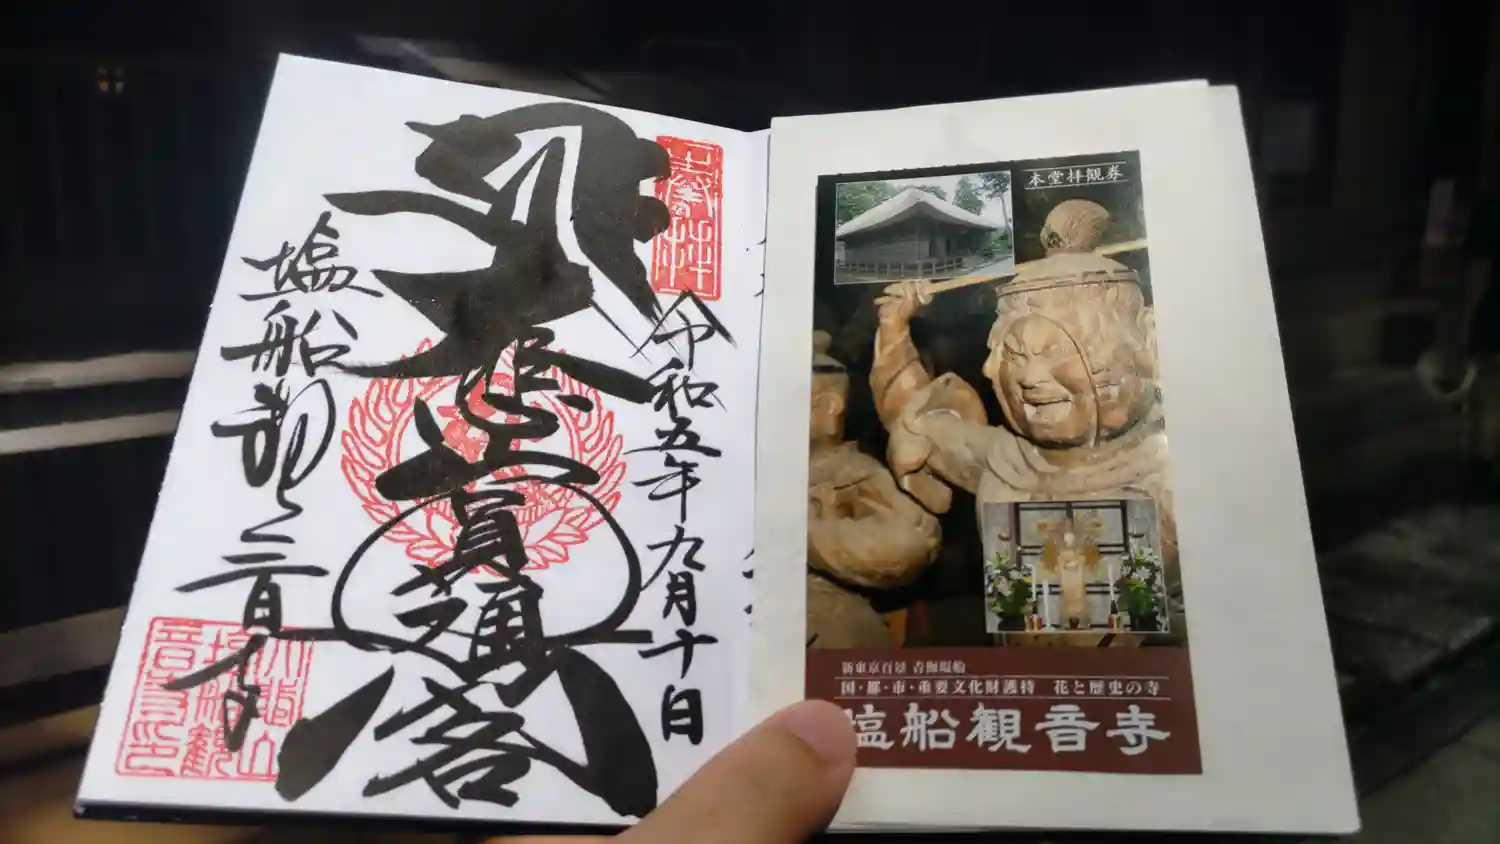 奉拝
令和五年九月十日
圓通閣
塩船観音寺
本堂拝観券
新東京百景 青梅塩船
国・都・市・重要文化財護持 花と歴史の寺
塩船観音寺